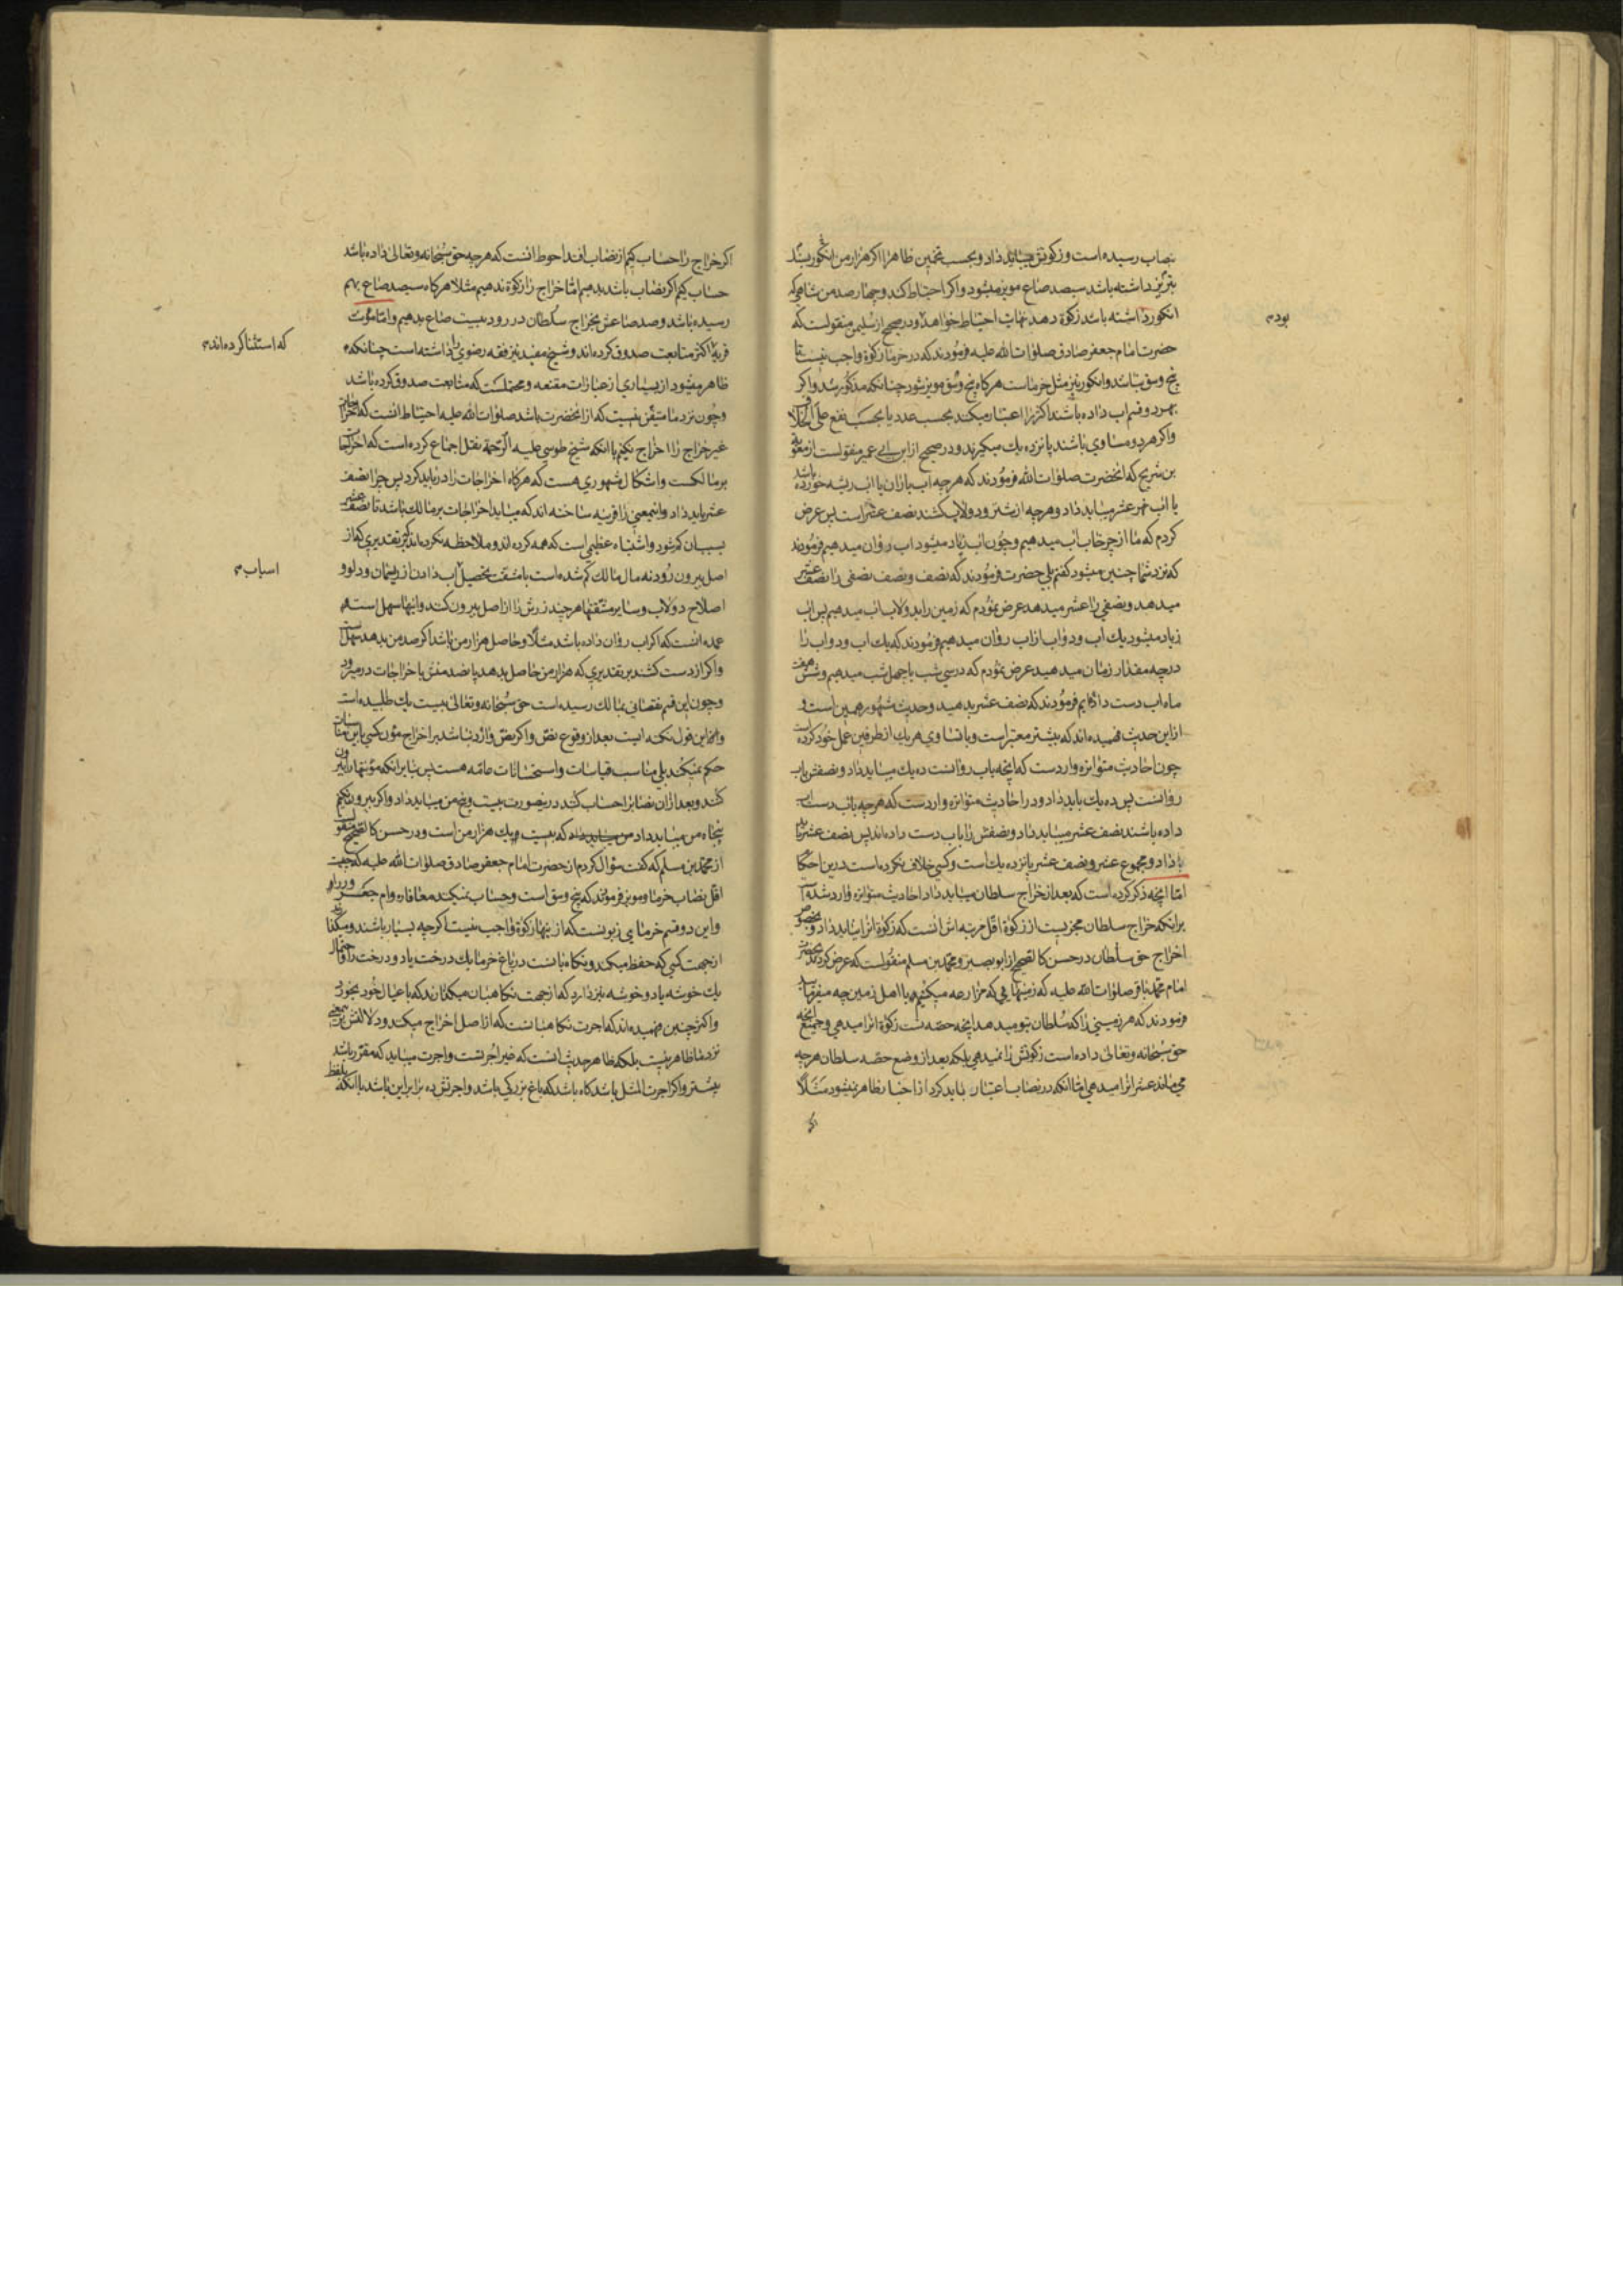 بنصاب رسیده است و زکوتش میباید داد و بحسب تخمین ظاهرا اکر هزار من انکور بسنک
تبریز داشته باشد سیصد صاع مویز میشود و اکر احتیاط کند و چهارصد من شاهی که
انکور داشته باشد زکوة دهد نهایت احتیاط خواهد و در صحیح از سلیمن منقولست که
بود م
حضرت امام جعفر صادق صلوات الله علیه فرمودند که در خرما زکوة واجب نیست تا
پنج وسق نباشد و انکور نیز مثل خرماست هرکاه پنج وسق مویز شود چنانکه مذکور شد و اکر
بهر دو قسم اب داده باشند اکثر را اعتبار میکند بحسب عدد یا بحسب نفع علی الخلاف
و اکر هر دو مساوی باشند پانزده یك میکیرند و در صحیح از ابن ابی عمیر منقولست از معویة
بن شریح که انحضرت صلوات الله فرمودند که هر چه اب باران یا اب ریشه خورده باشد
یا اب نهر عشر میباید داد و هر چه از شتر و دولاب کشند نصف عشر است پس عرض
کردم که ما از چرخاب اب میدهیم و چون اب زیاد میشود اب روان میدهیم فرمودند
که نزد شما چنین میشود کفتم بلی حضرت فرمودند که نصف و نصف نصفی را نصف عشر
میدهد و نصفی را عشر میدهد عرض نمودم که زمین را بدولاب اب میدهیم پس اب
زیاد میشود یك اب و دو اب از اب روان میدهیم فرمودند که یك اب و دو اب را
در چه مقدار زمان میدهید عرض نمودم که در سی شب یا چهل شب میدهیم و شش هفت
ماه اب دست داده ایم فرمودند که نصف عشر بدهید و حدیث مشهور همین است و
از این حدیث فهمیده اند که بیشتر معتبر است و با تساوی هر یك از طرفین عمل خود کرده است
چون احادیث متواتره وارد است که انچه باب روانست ده یك میباید داد و نصفش باب
روانست پس ده یك باید داد و در احادیث متواتره وارد است که هر چه باب دست اب
داده باشند نصف عشر میباید داد و نصفش را باب دست داده اند پس نصف عشر باید
داد و مجموع عشر و نصف عشر پانزده یك است و کسی خلاف نکرده است در این احکام
اما انچه ذکر کرده است که بعد از خراج سلطان میباید داد احادیث متواتره وارد شده است
بر انکه خراج سلطان مجزیست از زکوة اقل مرتبه اش انست که زکوة انرا نباید داد و بخصوص
اخراج حق سلطان در حسن کالصحیح از ابو بصیر و محمد بن مسلم منقولست که عرض کردند بحضرت
امام محمد باقر صلوات الله علیه که زمینهایی که مزارعه میکنیم با اهل زمین چه میفرمایید
فرمودند که هر زمینی را که سلطان بتو میدهد انچه حصه تست زکوة انرا میدهی و جمیع انچه
حق سبحانه و تعالی داده است زکوتش را نمیدهی بلکه بعد از وضع حصه سلطان هر چه
می ماند عشر انرا میدهی اما انکه در نصاب اعتبار نباید کرد از اخبار ظاهر نمیشود مثلا
اکر
اکر خراج را حساب کنیم از نصاب افتد احوط انست که هر چه حق سبحانه و تعالی داده باشد
حساب کنیم اکر نصاب باشد بدهیم اما خراج را زکوة ندهیم مثلا هرکاه سیصد صاع بهم
رسیده باشد و صد صاعش بخراج سلطان در رود بیست صاع بدهیم و اما مؤنت
قریه را اکثر متابعت صدوق کرده اند و شیخ مفید نیز فقه رضوی را داشته است چنانکه
که استثنا کرده اند م
ظاهر میشود از بسیاری از عبارات مقنعه و محتملست که متابعت صدوق کرده باشد
و چون نزد ما متیقن نیست که از انحضرت باشد صلوات الله علیه احتیاط انست که اخراجات
غیر خراج را اخراج نکنیم با انکه شیخ طوسی علیه الرحمة نقل اجماع کرده است که اخراجات
بر مالکست و اشکال مشهوری هست که هرکاه اخراجات را در باید کرد پس چرا نصف
عشر باید داد و اینمعنی را قرینه ساخته اند که میباید اخراجات بر مالك باشد تا نصف عشر
بسبب ان کم شود و اشتباه عظیمی است که همه کرده اند و ملاحظه نکرده اند که بر تقدیری که از
اصل بیرون رود نه مال مالك کم شده است با مشقت تحصیل اب دادن از ریسمان و دلو و
اسباب م
اصلاح دولاب و سایر مشقتها هر چند زرش را از اصل بیرون کند و اینها سهل است
عمده انست که اکر اب روان داده باشد مثلا و حاصل هزار من باشد اکر صد من بدهد سهل است
و اکر از دست کشند بر تقدیری که هزار من حاصل بدهد پانصد منش باخراجات در میرود
و چون این قسم نقصانی بمالك رسیده است حق سبحانه و تعالی بیست یك طلبیده است
و اما این قول نکته ایست بعد از وقوع نص و اکر نص وارد نباشد بر اخراج مؤن کسی باین مناسبات
حکم نمیکند بلی مناسب قیاسات و استحسانات عامه هست پس بنا بر انکه مؤنتها را بیرون
کنند و بعد از ان نصابرا حساب کنند در ینصورت بیست و پنج من میباید داد و اکر بیرون نکنیم
پنجاه من میباید داد که بیست و یك هزار من است و در حسن کالصحیح منقولست
از محمد بن مسلم که کفت سؤال کردم از حضرت امام جعفر صادق صلوات الله علیه که چیست
اقل نصاب خرما و مویز فرمودند که پنج وسق است و حساب نمیکند معافاره و ام جعرور را
و این دو قسم خرمای زبونست که از ینها زکوة واجب نیست اکر چه بسیار باشند و میکذارند
از جهت کسی که حفظ میکند و نکاهبانست در باغ خرما یك درخت یا دو درخت را و احتمال
یك خوشه یا دو خوشه نیز دارد که از جهت نکاهبان میکذارند که با عیال خود بخورد
و اکثر چنین فهمیده اند که اجرت نکاهبانست که از اصل اخراج میکند و دلالتش بر اینمعنی
نزد ما ظاهر نیست بلکه ظاهر حدیث انست که غیر اجرتست و اجرت میباید که مقرر باشد
بیشتر و اکر اجرت المثل باشد کاه باشد که باغ بزرکی باشد و اجرتش ده برابر این باشد با انکه بلفظ